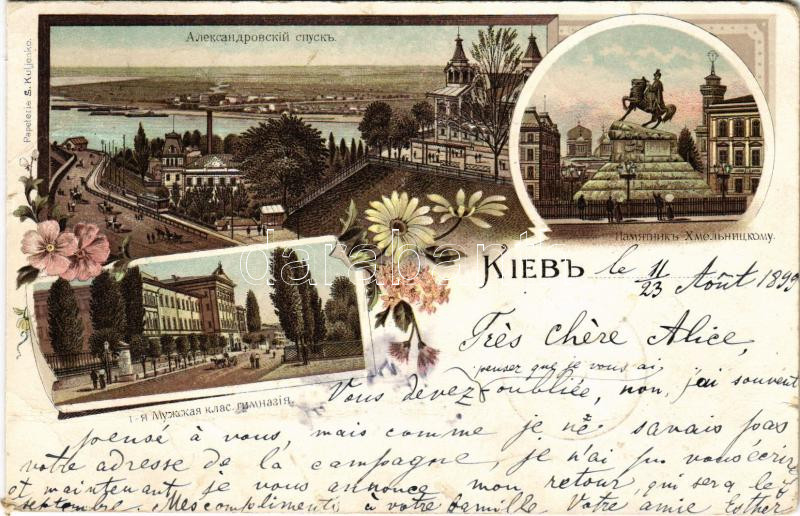 Александровскій спускъ.
Papeterie S. Kuljenko.
Памятникъ Хмѣльницкому.
КІЕВЪ le 11/23 Août 1899
Très chère Alice,
penser que je vous ai
Vous devez oubliée, non, j'ai souvent
1-я Мужская клас. гимназія.
pensé à vous, mais comme je ne savais pas
votre adresse de la campagne, je n'ai pu vous écrire
et maintenant je vous annonce mon retour, qui sera le 7
septembre. Mes compliments à votre famille. Votre amie Esther
darabanth